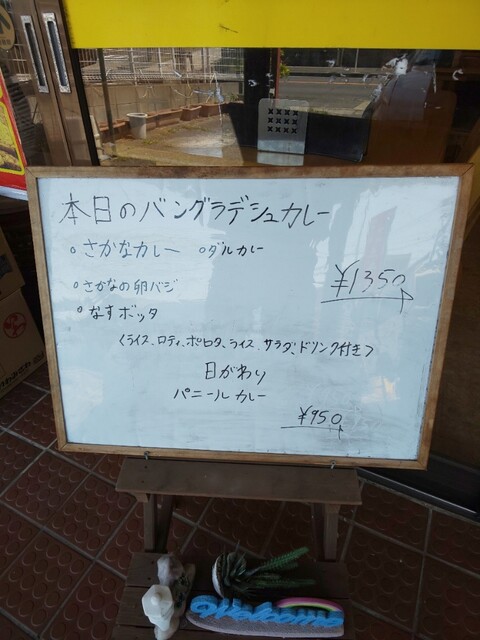 本日のバングラデシュカレー
○さかなカレー ○ダルカレー
○さかなの卵バジ
¥1350
○なすボッタ
<ライス、ロティ、ポロタ、ライス、サラダ、ドリンク付き>
日がわり
パニールカレー
¥950
Welcome